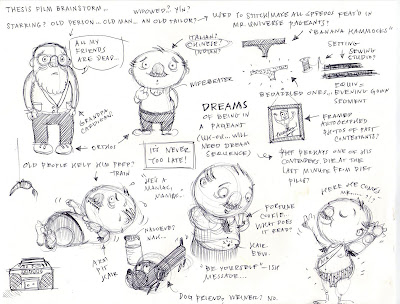 THESIS FILM BRAINSTORM...
STARRING? OLD PERSON... OLD MAN... AN OLD TAILOR?
WIDOWED?
USED TO STITCH/MAKE ALL SPEEDOS FEAT'D IN
MR. UNIVERSE PAGEANTS!
"BANANA HAMMOCKS"
ALL MY
FRIENDS
ARE DEAD...
ITALIAN?
CHINESE?
INDIAN?
SETTING
SEWING
STUDIO?
WIFEBEATER
BEDAZZLED ONES...
EQUIV =
EVENING GOWN
SEGMENT
GRANDPA
ORTHOS
DREAMS
OF BEING
IN A
PAGEANT
(UH-OH... WILL
NEED DREAM
SEQUENCE)
FRAMED
AUTOGRAPHED
PHOTOS OF PAST
CONTESTANTS?
IT'S NEVER
TOO LATE!
OLD PEOPLE HELP HIM PREP?
TRAIN
PERHAPS ONE OF HIS
CONTENDERS DIE AT THE
LAST MINUTE FROM DIET
PILLS?
"HE'S A
MANIAC,
MANIAC..
FORTUNE
COOKIE...
WHAT DOES
IT READ?
HERE HE COMES
MR. ........!"
ARM
PIT
HAIR
"BE YOURSELF"-ISH
MESSAGE...
DOG FRIEND? WEINER? NO.